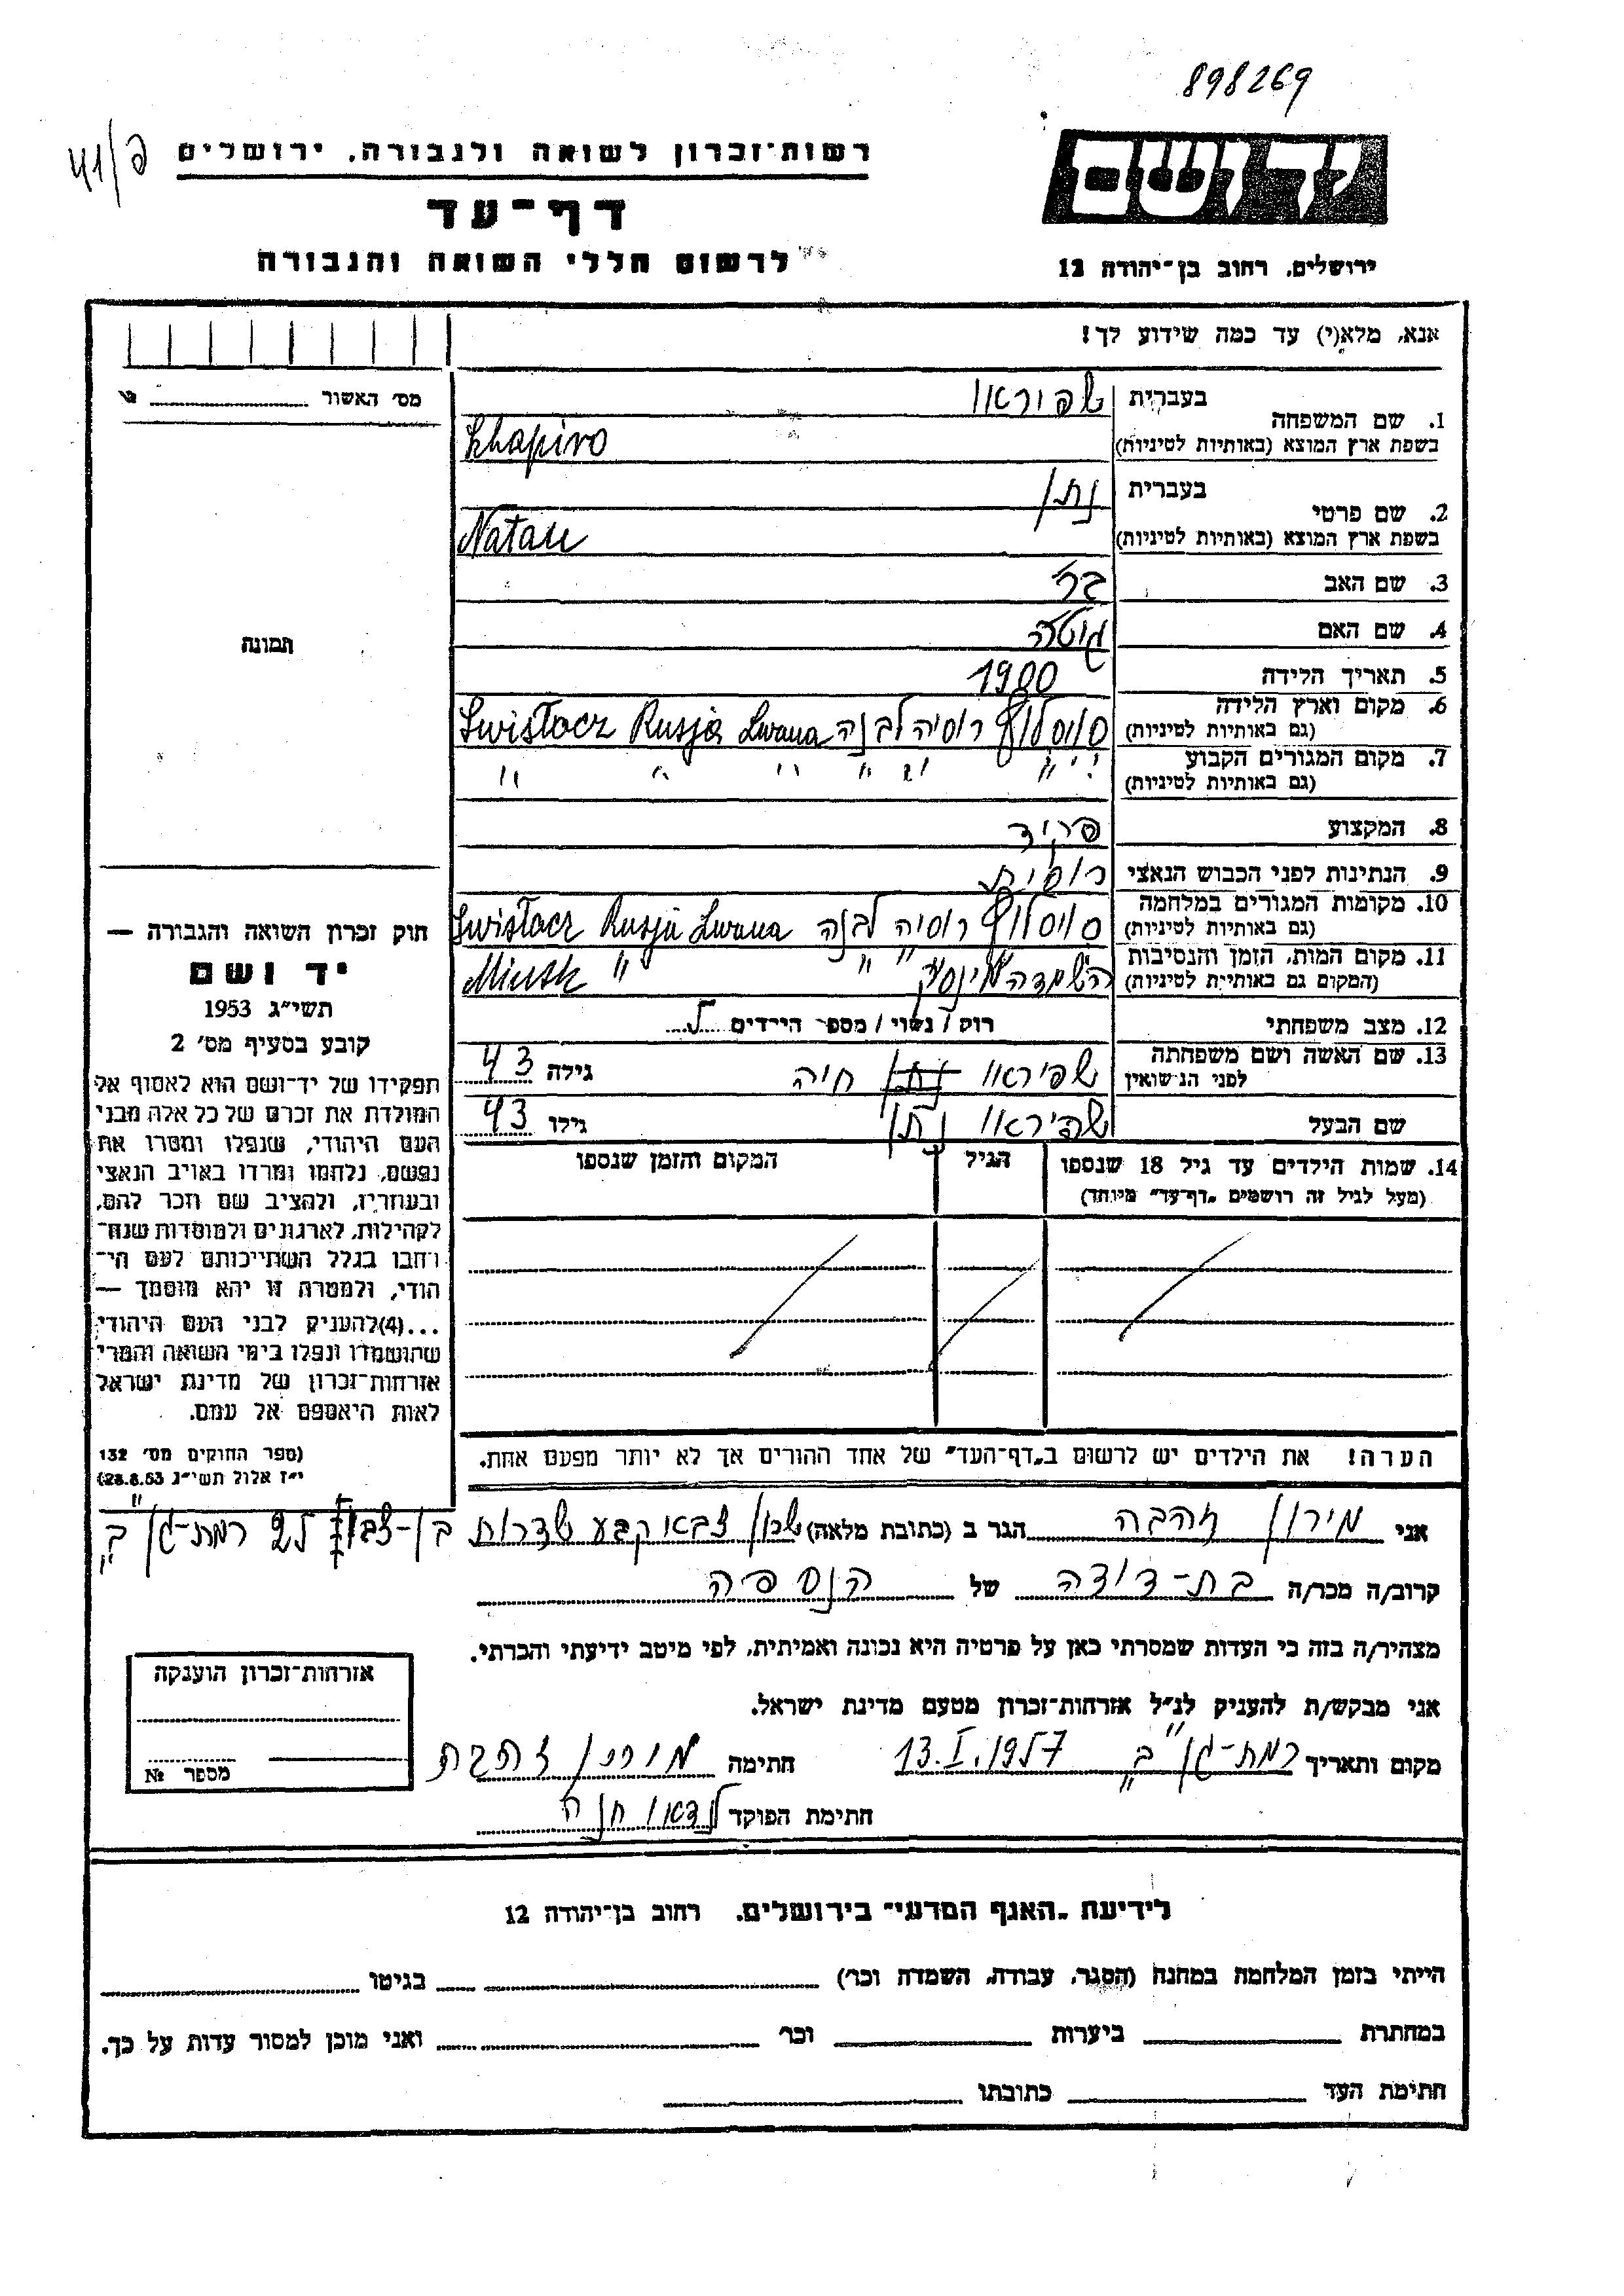 898269
41/פ
רשות־זכרון לשואה ולגבורה, ירושלים
יד ושם
דף־עד
לרשום חללי השואה והגבורה
ירושלים, רחוב בן־יהודה 12
אנא, מלא(י) עד כמה שידוע לך!
מס' האשור
1. שם המשפחה בעברית שפיראו
בשפת ארץ המוצא (באותיות לטיניות) Shapiro
2. שם פרטי בעברית נתן
בשפת ארץ המוצא (באותיות לטיניות) Natan
3. שם האב בר
4. שם האם גוטה
5. תאריך הלידה 1900
6. מקום וארץ הלידה סויסלוץ רוסיה לבנה Swistocz Rusja Lwana
(גם באותיות לטיניות)
7. מקום המגורים הקבוע " " " " " " "
(גם באותיות לטיניות)
8. המקצוע פקיד
9. הנתינות לפני הכבוש הנאצי רוסית
10. מקומות המגורים במלחמה סויסלוץ רוסיה לבנה Swistocz Rusja Lwana
(גם באותיות לטיניות)
11. מקום המות, הזמן והנסיבות השמדה מינסק " " Minsk "
(המקום גם באותיות לטיניות)
12. מצב משפחתי רוק / נשוי / מספר הילדים
13. שם האשה ושם משפחתה שפיראו חיה גילה 43
לפני הנשואין
שם הבעל שפיראו נתן גילו 43
14. שמות הילדים עד גיל 18 שנספו הגיל המקום והזמן שנספו
(מעל לגיל זה רושמים „דף־עד" מיוחד)
הערה! את הילדים יש לרשום ב„דף־העד" של אחד ההורים אך לא יותר מפעם אחת.
תמונה
חוק זכרון השואה והגבורה —
יד ושם
תשי"ג 1953
קובע בסעיף מס' 2
תפקידו של יד־ושם הוא לאסוף אל
המולדת את זכרם של כל אלה מבני
העם היהודי, שנפלו ומסרו את
נפשם, נלחמו ומרדו באויב הנאצי
ובעוזריו, ולהציב שם וזכר להם,
לקהילות, לארגונים ולמוסדות שנח־
רבו בגלל השתייכותם לעם הי־
הודי, ולמטרה זו יהא מוסמך —
...(4)להעניק לבני העם היהודי
שהושמדו ונפלו בימי השואה והמרי
אזרחות־זכרון של מדינת ישראל
לאות היאספם אל עמם.
(ספר החוקים מס' 132
י"ז אלול תשי"ג 28.8.53)
אני מירון זהבה הגר ב (כתובת מלאה) שכון צבא קבע שדרות בן-צבי 25 רמת-גן ב"
קרוב/ה מכר/ה בת-דודה של הנספה
מצהיר/ה בזה כי העדות שמסרתי כאן על פרטיה היא נכונה ואמיתית, לפי מיטב ידיעתי והכרתי.
אני מבקש/ת להעניק לנ"ל אזרחות־זכרון מטעם מדינת ישראל.
מקום ותאריך רמת-גן ב" 13.I.1957 חתימה מירון זהבה
חתימת הפוקד לנדאו חנה
אזרחות־זכרון הוענקה
מספר №
לידיעת „האגף המדעי" בירושלים, רחוב בן־יהודה 12
הייתי בזמן המלחמה במחנה (הסגר, עבודה, השמדה וכו') בגיטו
במחתרת ביערות וכו' ואני מוכן למסור עדות על כך.
חתימת העד כתובתו